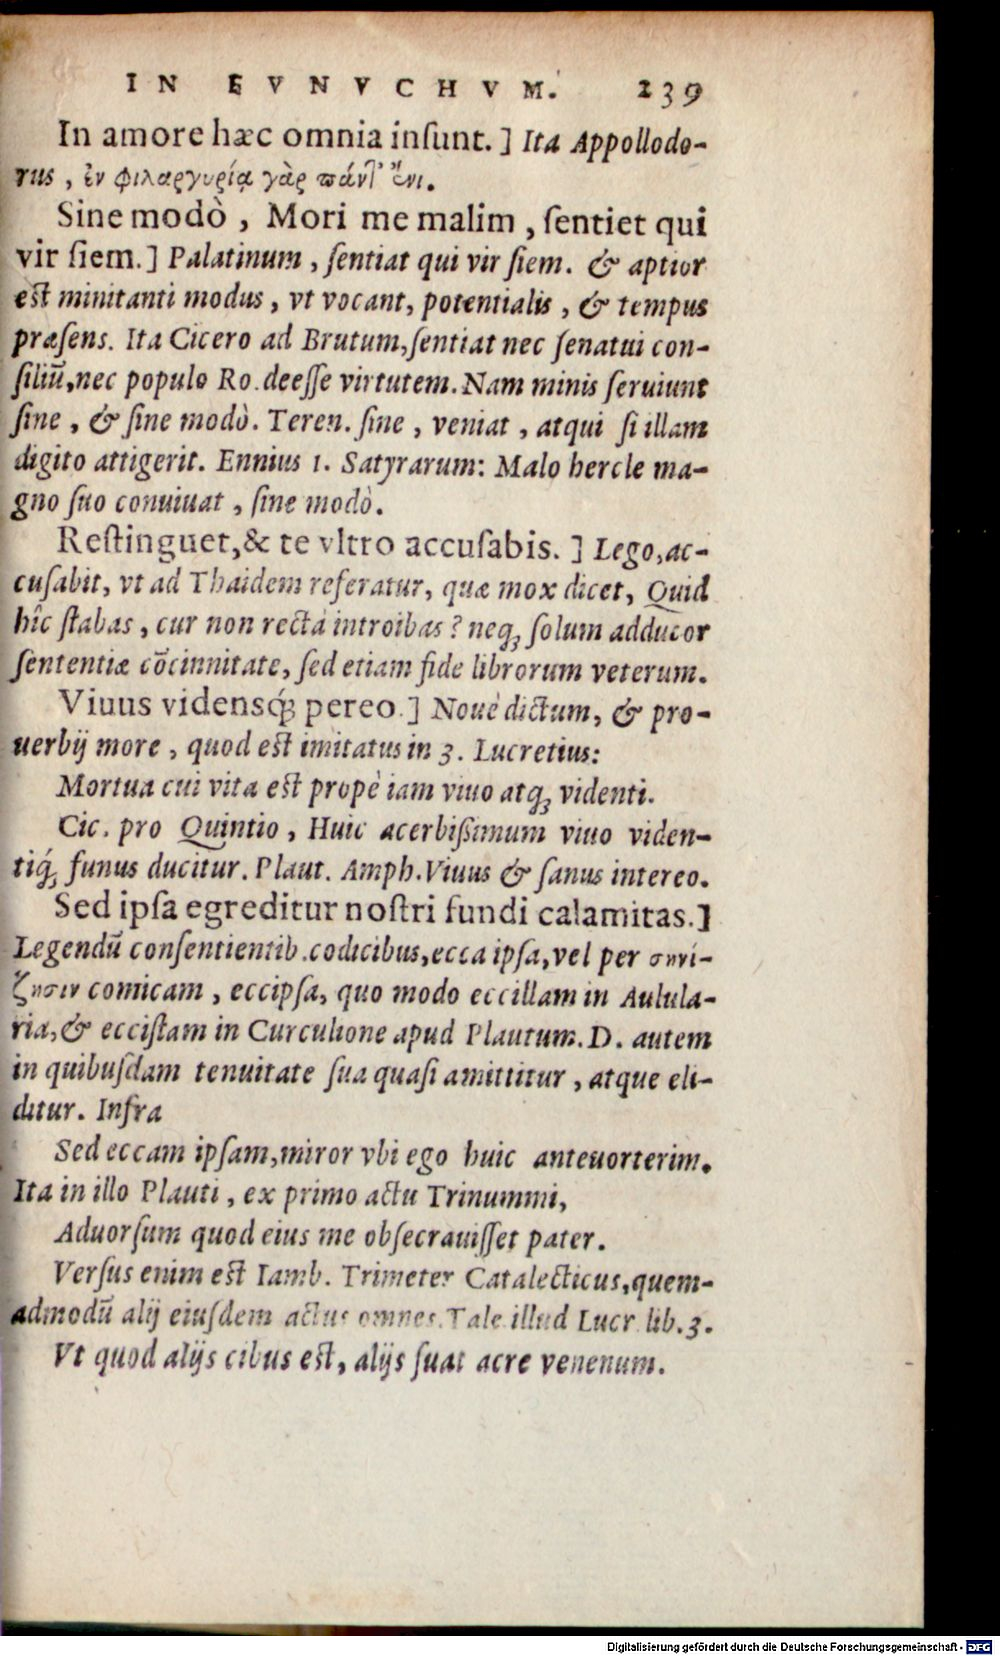 IN EVNVCHVM. 239
In amore hæc omnia insunt.] Ita Appollodo-
rus, ἐν φιλαργυρίᾳ γὰρ πάντ' ἔνι.
Sine modò, Mori me malim, ſentiet qui
vir ſiem.] Palatinum, ſentiat qui vir ſiem. & aptior
eſt minitanti modus, vt vocant, potentialis, & tempus
præſens. Ita Cicero ad Brutum, ſentiat nec ſenatui con-
ſiliũ, nec populo Ro. deeſſe virtutem. Nam minis ſeruiunt
ſine, & ſine modò. Teren. ſine, veniat, atqui ſi illam
digito attigerit. Ennius 1. Satyrarum: Malo hercle ma-
gno ſuo conuiuat, ſine modò.
Reſtinguet, & te vltro accuſabis.] Lego, ac-
cuſabit, vt ad Thaidem referatur, quæ mox dicet, Quid
hîc ſtabas, cur non rectà introibas? neq; ſolum adducor
ſententiæ cōcinnitate, ſed etiam fide librorum veterum.
Viuus vidensq́; pereo.] Nouè dictum, & pro-
uerbij more, quod eſt imitatus in 3. Lucretius:
Mortua cui vita eſt propè iam viuo atq; videnti.
Cic. pro Quintio, Huic acerbiſſimum viuo viden-
tiq́; funus ducitur. Plaut. Amph. Viuus & ſanus intereo.
Sed ipſa egreditur noſtri fundi calamitas.]
Legendũ conſentientib. codicibus, ecca ipſa, vel per συνί-
ζησιν comicam, eccipſa, quo modo eccillam in Aulula-
ria, & ecciſtam in Curculione apud Plautum. D. autem
in quibuſdam tenuitate ſua quaſi amittitur, atque eli-
ditur. Infra
Sed eccam ipſam, miror vbi ego huic anteuorterim.
Ita in illo Plauti, ex primo actu Trinummi,
Aduorſum quod eius me obſecrauiſſet pater.
Verſus enim eſt Iamb. Trimeter Catalecticus, quem-
admodũ alij eiuſdem actus omnes. Tale illud Lucr. lib. 3.
Vt quod alijs cibus eſt, alijs fuat acre venenum.
Digitalisierung gefördert durch die Deutsche Forschungsgemeinschaft - DFG